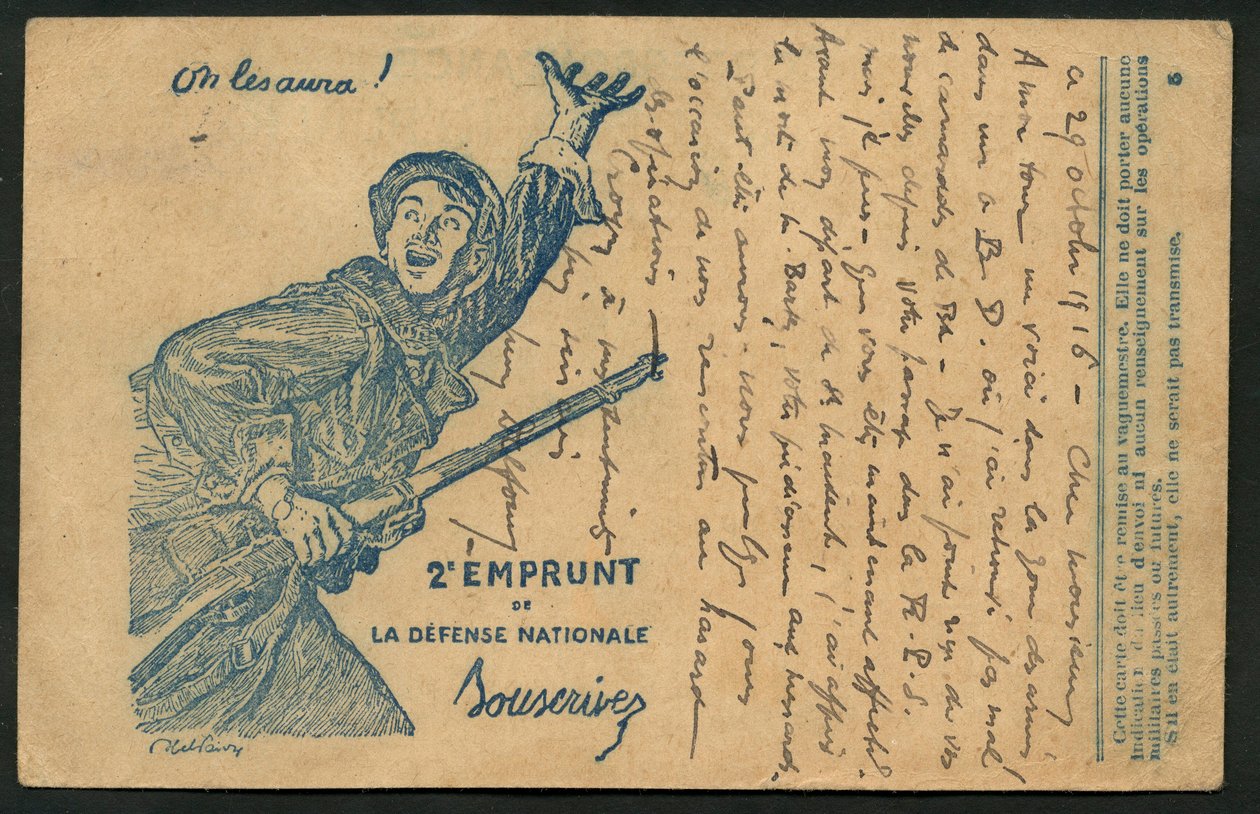 On les aura !
2E EMPRUNT
DE
LA DÉFENSE NATIONALE
Souscrivez
Abel Faivre
Cette carte doit être remise au vaguemestre. Elle ne doit porter aucune
indication du lieu d'envoi ni aucun renseignement sur les opérations
militaires passées ou futures.
S'il en était autrement, elle ne serait pas transmise.
ce 29 octobre 1916 – Cher monsieur,
A mon tour me voici dans la zone des armées
dans un B. D. où j'ai retrouvé pas mal
de camarades de – Je n'ai point reçu de vos
nouvelles depuis votre passage dans la R.P.S.
mais je pense que vous êtes maintenant affecté.
Avant mon départ de St , j'ai appris
la mort de M. , votre prédécesseur aux hussards.
Peut-être aurons-nous quelque jour
l'occasion de nous rencontrer au hasard
des opérations –
Croyez à mes sentiments
bien